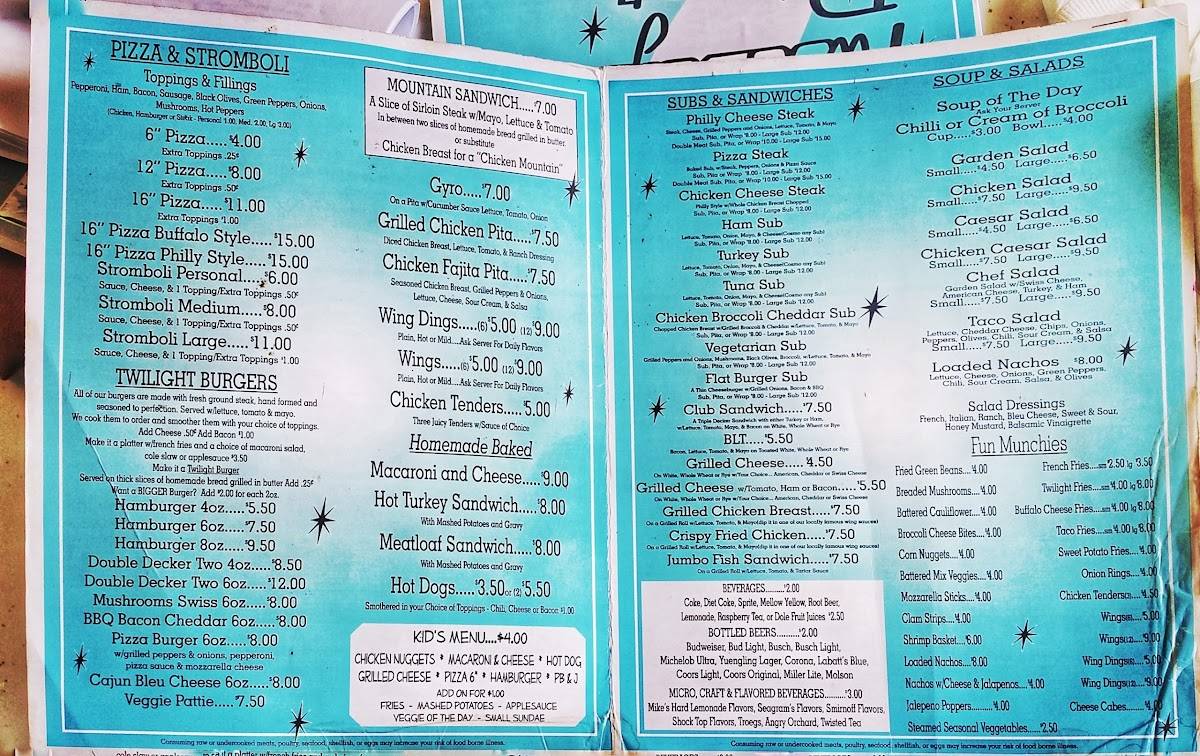 PIZZA & STROMBOLI
Toppings & Fillings
Pepperoni, Ham, Bacon, Sausage, Black Olives, Green Peppers, Onions,
Mushrooms, Hot Peppers
(Chicken, Hamburger or Steak - Personal $1.00, Med. $2.00, Lg $3.00)
6" Pizza.....$4.00
Extra Toppings .25¢
12" Pizza.....$8.00
Extra Toppings .50¢
16" Pizza.....$11.00
Extra Toppings $1.00
16" Pizza Buffalo Style.....$15.00
16" Pizza Philly Style.....$15.00
Stromboli Personal.....$6.00
Sauce, Cheese, & 1 Topping/Extra Toppings .50¢
Stromboli Medium.....$8.00
Sauce, Cheese, & 1 Topping/Extra Toppings .50¢
Stromboli Large.....$11.00
Sauce, Cheese, & 1 Topping/Extra Toppings $1.00
TWILIGHT BURGERS
All of our burgers are made with fresh ground steak, hand formed and
seasoned to perfection. Served w/lettuce, tomato & mayo.
We cook them to order and smoother them with your choice of toppings.
Add Cheese .50¢ Add Bacon $1.00
Make it a platter w/french fries and a choice of macaroni salad,
cole slaw or applesauce $3.50
Make it a Twilight Burger
Served on thick slices of homemade bread grilled in butter Add .25¢
Want a BIGGER Burger? Add $2.00 for each 2oz.
Hamburger 4oz.....$5.50
Hamburger 6oz.....$7.50
Hamburger 8oz.....$9.50
Double Decker Two 4oz.....$8.50
Double Decker Two 6oz.....$12.00
Mushrooms Swiss 6oz.....$8.00
BBQ Bacon Cheddar 6oz.....$8.00
Pizza Burger 6oz.....$8.00
w/grilled peppers & onions, pepperoni,
pizza sauce & mozzarella cheese
Cajun Bleu Cheese 6oz.....$8.00
Veggie Pattie.....$7.50
MOUNTAIN SANDWICH.....$7.00
A Slice of Sirloin Steak w/Mayo, Lettuce & Tomato
In between two slices of homemade bread grilled in butter.
or substitute
Chicken Breast for a "Chicken Mountain"
Gyro.....$7.00
On a Pita w/Cucumber Sauce Lettuce, Tomato, Onion
Grilled Chicken Pita.....$7.50
Diced Chicken Breast, Lettuce, Tomato, & Ranch Dressing
Chicken Fajita Pita.....$7.50
Seasoned Chicken Breast, Grilled Peppers & Onions,
Lettuce, Cheese, Sour Cream, & Salsa
Wing Dings.....(6)$5.00 (12)$9.00
Plain, Hot or Mild....Ask Server For Daily Flavors
Wings.....(6)$5.00 (12)$9.00
Plain, Hot or Mild....Ask Server For Daily Flavors
Chicken Tenders.....$5.00
Three Juicy Tenders w/Sauce of Choice
Homemade Baked
Macaroni and Cheese.....$9.00
Hot Turkey Sandwich.....$8.00
With Mashed Potatoes and Gravy
Meatloaf Sandwich.....$8.00
With Mashed Potatoes and Gravy
Hot Dogs.....$3.50 or (2)$5.50
Smothered in your Choice of Toppings - Chili, Cheese or Bacon $1.00
KID'S MENU....$4.00
CHICKEN NUGGETS * MACARONI & CHEESE * HOT DOG
GRILLED CHEESE * PIZZA 6" * HAMBURGER * PB & J
ADD ON FOR $1.00
FRIES - MASHED POTATOES - APPLESAUCE
VEGGIE OF THE DAY - SMALL SUNDAE
Consuming raw or undercooked meats, poultry, seafood, shellfish, or eggs may increase your risk of food borne illness.
SUBS & SANDWICHES
Philly Cheese Steak
Steak, Cheese, Grilled Peppers and Onions, Lettuce, Tomato, & Mayo
Sub, Pita, or Wrap $8.00 - Large Sub $12.00
Double Meat Sub, Pita, or Wrap $10.00 - Large Sub $15.00
Pizza Steak
Baked Sub, w/Steak, Peppers, Onions & Pizza Sauce
Sub, Pita or Wrap $8.00 - Large Sub $12.00
Double Meat Sub, Pita, or Wrap $10.00 - Large Sub $15.00
Chicken Cheese Steak
Philly Style w/Whole Chicken Breast Chopped
Sub, Pita, or Wrap $8.00 - Large Sub $12.00
Ham Sub
Lettuce, Tomato, Onion, Mayo, & Cheese(Cosmo any Sub)
Sub, Pita, or Wrap $8.00 - Large Sub $12.00
Turkey Sub
Lettuce, Tomato, Onion, Mayo, & Cheese(Cosmo any Sub)
Sub, Pita, or Wrap $8.00 - Large Sub $12.00
Tuna Sub
Lettuce, Tomato, Onion, Mayo, & Cheese(Cosmo any Sub)
Sub, Pita, or Wrap $8.00 - Large Sub $12.00
Chicken Broccoli Cheddar Sub
Chopped Chicken Breast w/Grilled Broccoli & Cheddar w/Lettuce, Tomato, & Mayo
Sub, Pita, or Wrap $8.00 - Large Sub $12.00
Vegetarian Sub
Grilled Peppers and Onions, Mushrooms, Black Olives, Broccoli, w/Lettuce, Tomato, & Mayo
Sub, Pita, or Wrap $8.00 - Large Sub $12.00
Flat Burger Sub
A Thin Cheeseburger w/Grilled Onions, Bacon & BBQ
Sub, Pita, or Wrap $8.00 - Large Sub $12.00
Club Sandwich.....$7.50
A Triple Decker Sandwich with either Turkey or Ham,
w/Lettuce, Tomato, Mayo, & Bacon on White, Whole Wheat or Rye
BLT.....$5.50
Bacon, Lettuce, Tomato, & Mayo on Toasted White, Whole Wheat or Rye
Grilled Cheese.....$4.50
On White, Whole Wheat or Rye w/Your Choice... American, Cheddar or Swiss Cheese
Grilled Cheese w/Tomato, Ham or Bacon.....$5.50
On White, Whole Wheat or Rye w/Your Choice... American, Cheddar or Swiss Cheese
Grilled Chicken Breast.....$7.50
On a Grilled Roll w/Lettuce, Tomato, & Mayo(dip it in one of our locally famous wing sauces)
Crispy Fried Chicken.....$7.50
On a Grilled Roll w/Lettuce, Tomato, & Mayo(dip it in one of our locally famous wing sauces)
Jumbo Fish Sandwich.....$7.50
On a Grilled Roll w/Lettuce, Tomato, & Tartar Sauce
BEVERAGES..........$2.00
Coke, Diet Coke, Sprite, Mellow Yellow, Root Beer,
Lemonade, Raspberry Tea, or Dole Fruit Juices $2.50
BOTTLED BEERS..........$2.00
Budweiser, Bud Light, Busch, Busch Light,
Michelob Ultra, Yuengling Lager, Corona, Labatt's Blue,
Coors Light, Coors Original, Miller Lite, Molson
MICRO, CRAFT & FLAVORED BEVERAGES.........$3.00
Mike's Hard Lemonade Flavors, Seagram's Flavors, Smirnoff Flavors,
Shock Top Flavors, Troegs, Angry Orchard, Twisted Tea
SOUP & SALADS
Soup of The Day
Ask Your Server
Chilli or Cream of Broccoli
Cup.....$3.00 Bowl.....$4.00
Garden Salad
Small.....$4.50 Large....$6.50
Chicken Salad
Small.....$7.50 Large....$9.50
Caesar Salad
Small.....$4.50 Large....$6.50
Chicken Caesar Salad
Small.....$7.50 Large....$9.50
Chef Salad
Garden Salad w/Swiss Cheese,
American Cheese, Turkey, & Ham
Small.....$7.50 Large....$9.50
Taco Salad
Lettuce, Cheddar Cheese, Chips, Onions,
Peppers, Olives, Chili, Sour Cream, & Salsa
Small.....$7.50 Large....$9.50
Loaded Nachos $8.00
Lettuce, Cheese, Onions, Green Peppers,
Chili, Sour Cream, Salsa, & Olives
Salad Dressings
French, Italian, Ranch, Bleu Cheese, Sweet & Sour,
Honey Mustard, Balsamic Vinaigrette
Fun Munchies
Fried Green Beans....$4.00
Breaded Mushrooms....$4.00
Battered Cauliflower....$4.00
Broccoli Cheese Bites....$4.00
Corn Nuggets....$4.00
Battered Mix Veggies....$4.00
Mozzarella Sticks....$4.00
Clam Strips....$4.00
Shrimp Basket....$6.00
Loaded Nachos....$8.00
Nachos w/Cheese & Jalapenos....$4.00
Jalepeno Poppers..........$4.00
Steamed Seasonal Veggetables.....$2.50
French Fries....sm $2.50 lg $3.50
Twilight Fries....sm $4.00 lg $8.00
Buffalo Cheese Fries....sm $4.00 lg $8.00
Taco Fries....sm $4.00 lg $8.00
Sweet Potato Fries....$4.00
Onion Rings....$4.00
Chicken Tenders(3)....$4.50
Wings(6)....$5.00
Wings(12)....$9.00
Wing Dings(6)....$5.00
Wing Dings(12)....$9.00
Cheese Cabes....$4.00
Consuming raw or undercooked meats, poultry, seafood, shellfish, or eggs may increase your risk of food borne illness.